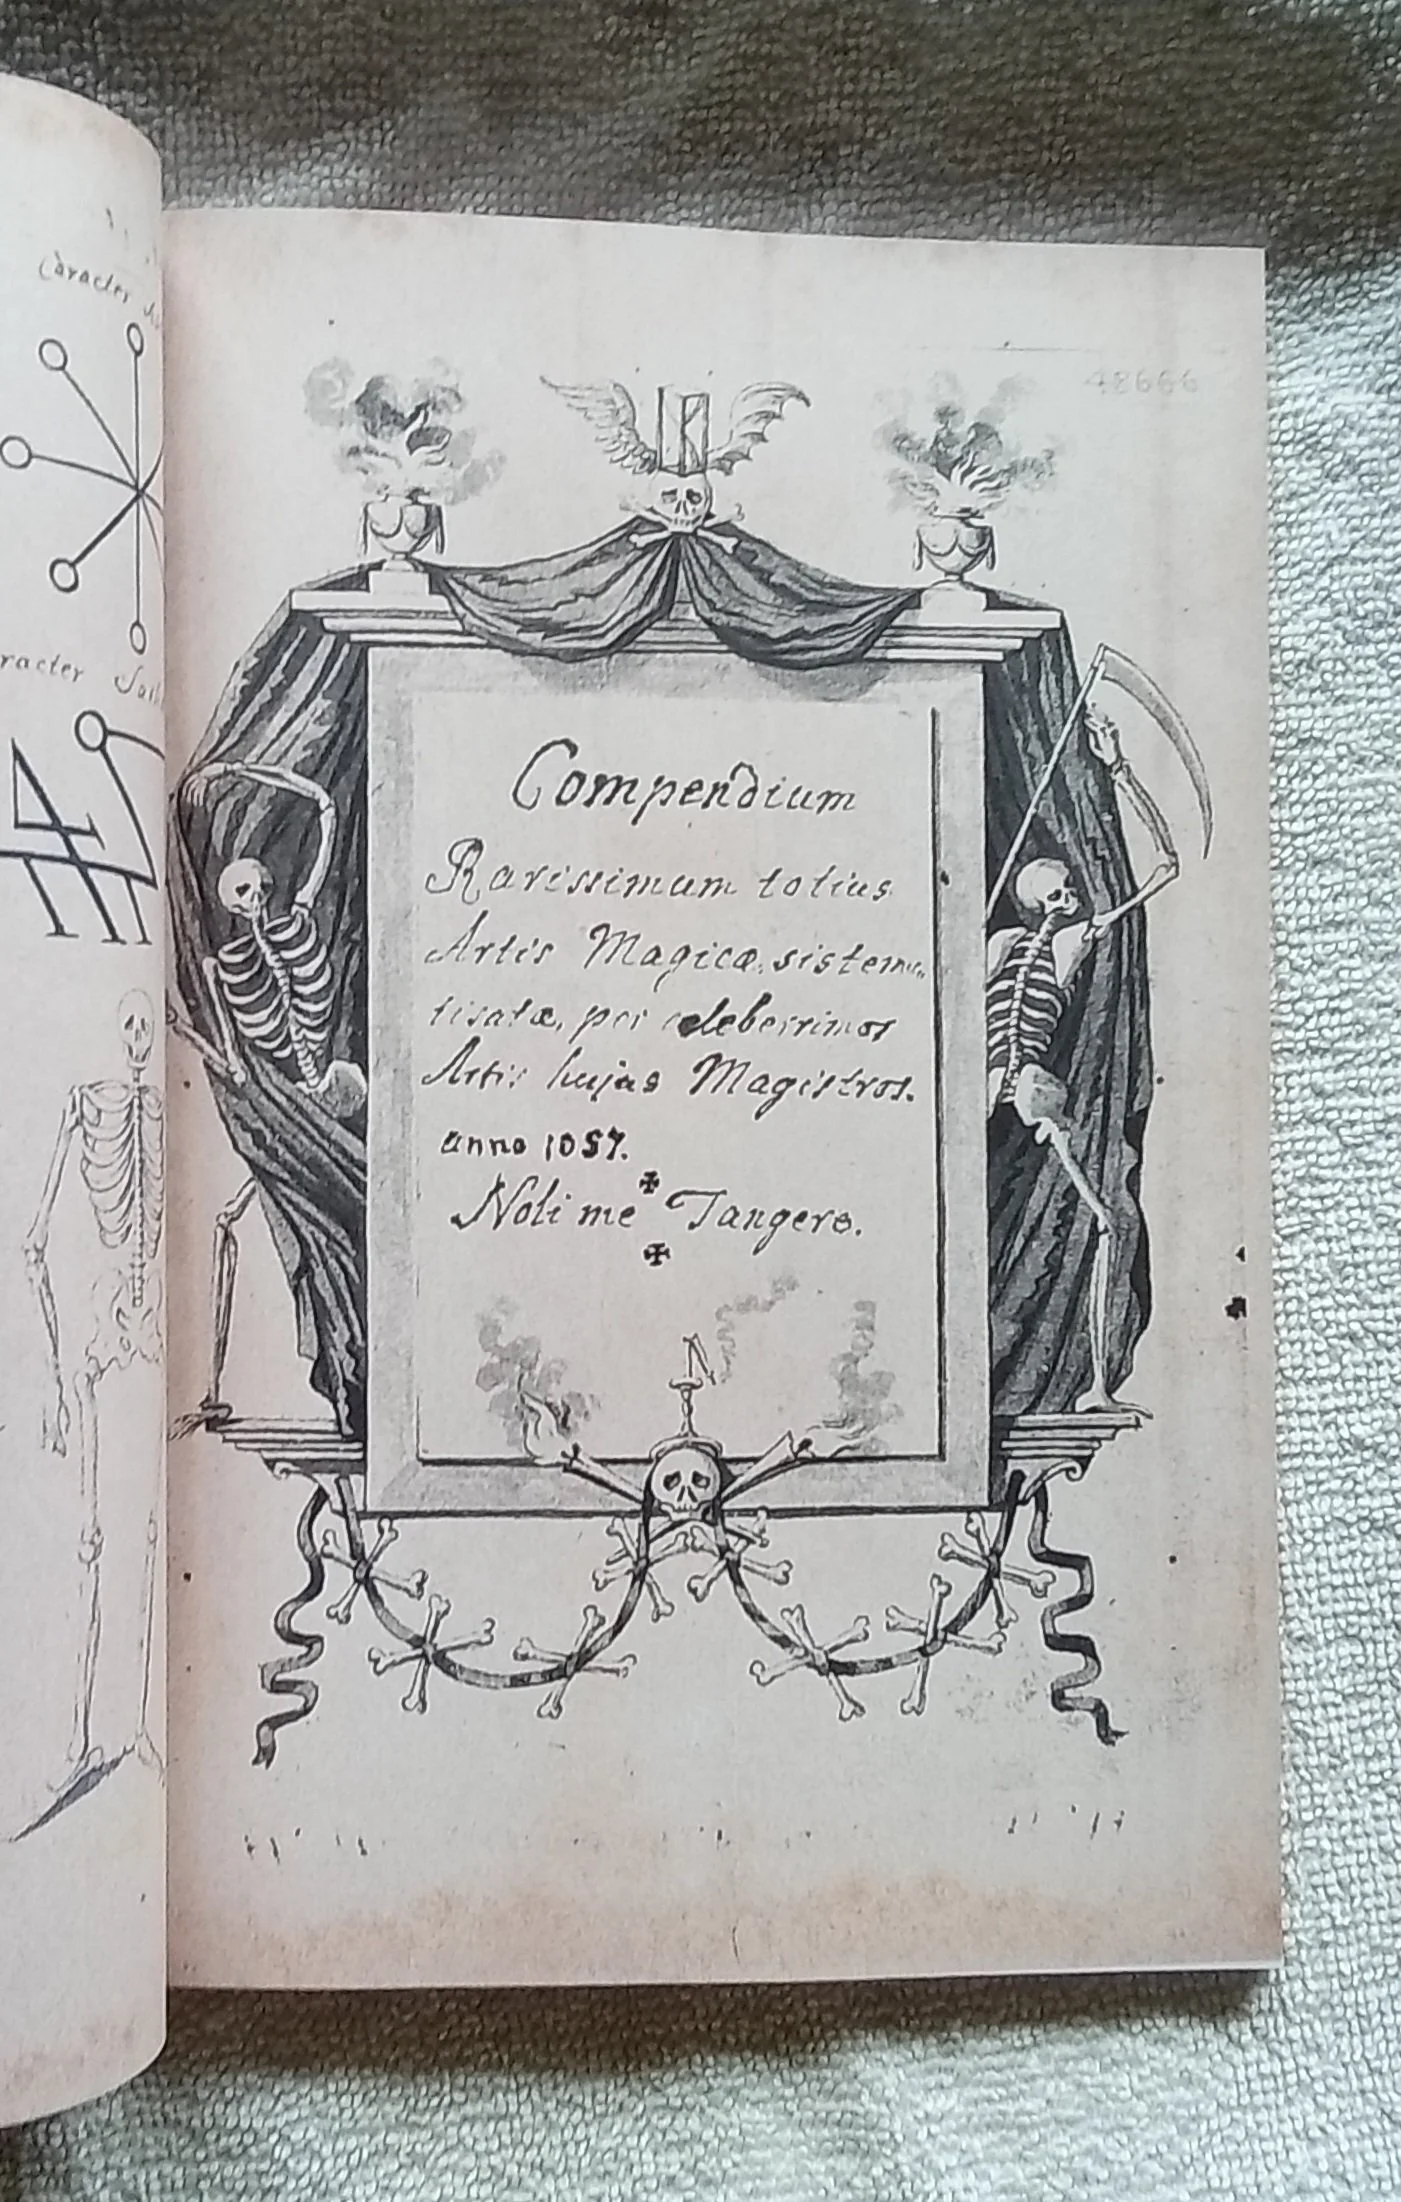 Caracter
racter
48666
Compendium
Rarissimum totius
Artis Magicæ, sistema
tisatæ, per celeberrimos
Artis hujus Magistros.
anno 1057.
Noli me Tangere.
N